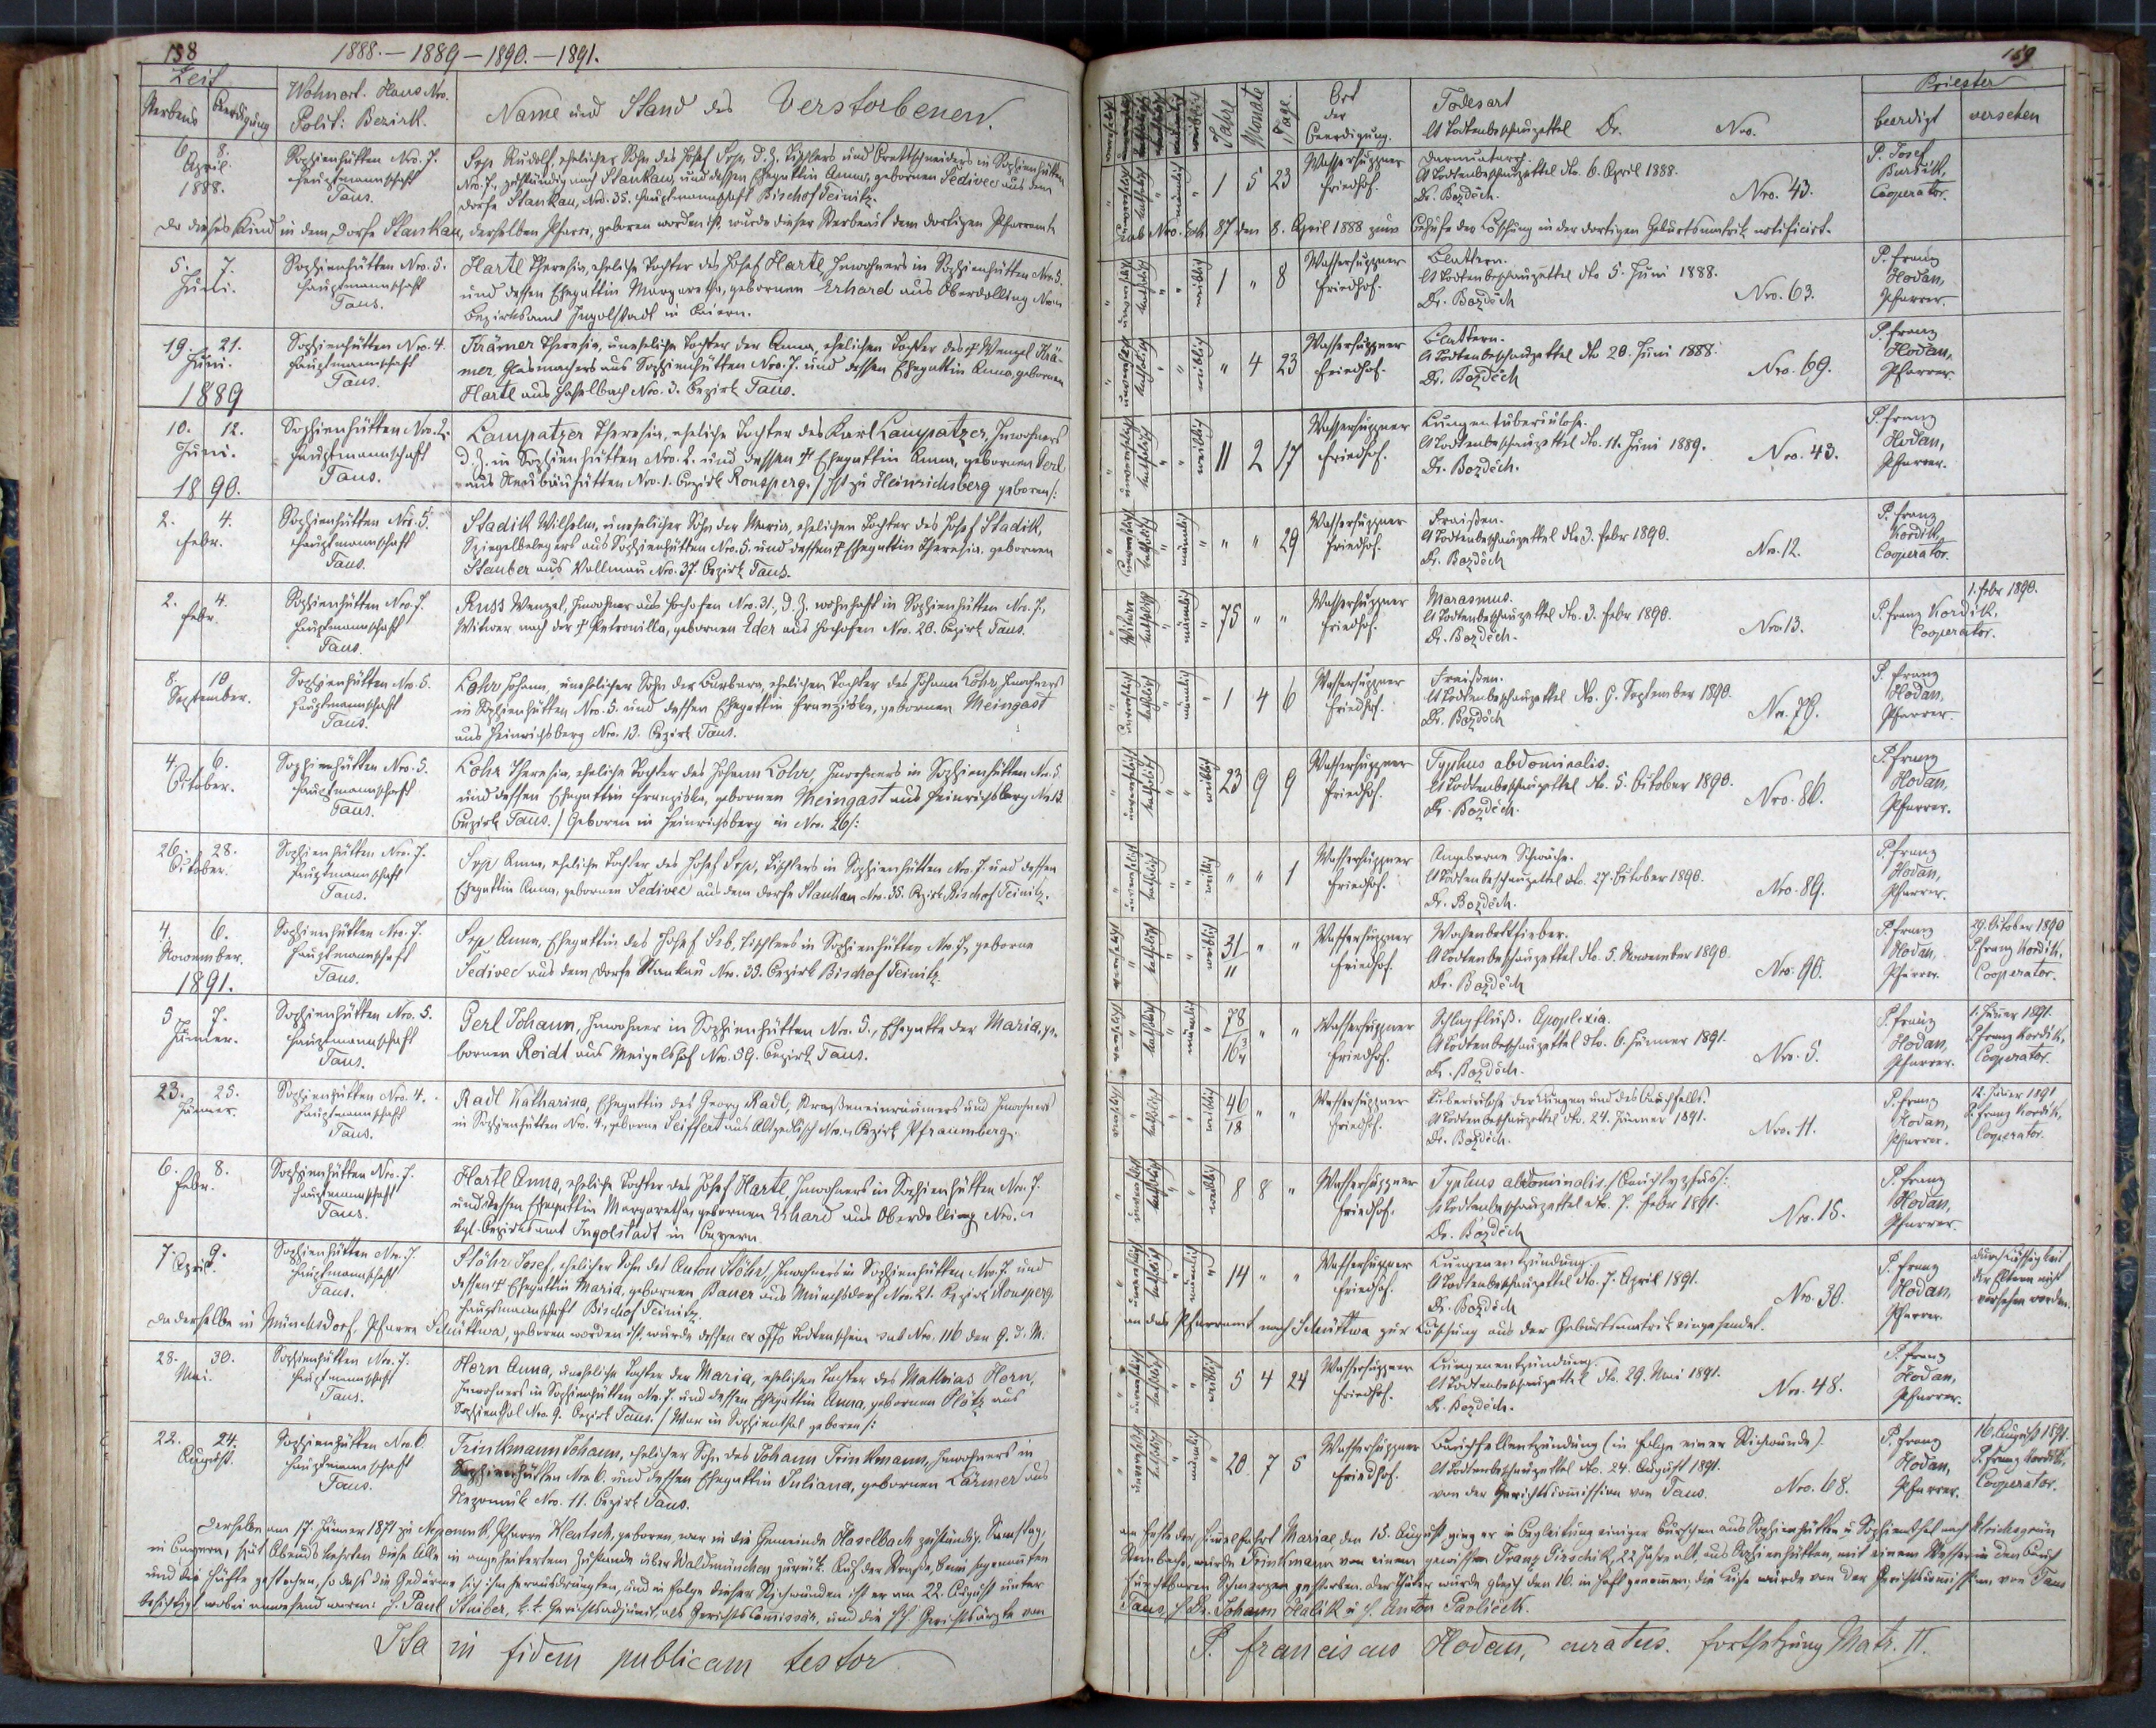 158
1888. – 1889 – 1890. – 1891.
Zeit
Sterbens Beerdigung
Wohnort. Haus Nro.
Polit: Bezirk.
Name und Stand des Verstorbenen.
6. 8.
April.
1888.
Sophienhütten Nro. 7.
Hauptmannschaft
Taus.
Srp Rudolf, ehelicher Sohn des Josef Srp, d. Z. Tischlers und Brettschneiders in Sophienhütten
Nro. 7, zuständig nach Stankau, und dessen Ehegattin Anna, gebornen Sedivec aus dem
Dorfe Stankau, Nro. 35. Hauptmannschaft Bischof Teinitz.
Da dieses Kind in dem Dorfe Stankau, derselben Pfarre, geboren worden ist, wurde dieser Sterbeact dem dortigen Pfarramte
5. 7.
Juni.
Sophienhütten Nro. 5.
Hauptmannschaft
Taus.
Hartl Theresia, eheliche Tochter des Josef Hartl, Inwohners in Sophienhütten Nro. 5.
und dessen Ehegattin Margaretha, gebornen Erhard aus Oberdolling Nro. "
Bezirksamt Ingolstadt in Baiern.
19. 21.
Juni.
1889
Sophienhütten Nro. 4.
Hauptmannschaft
Taus.
Krämer Theresia, uneheliche Tochter der Anna, ehelichen Tochter des † Wenzel Krä-
mer, Glasmachers aus Sophienhütten Nro. 7. und dessen Ehegattin Anna, gebornen
Hartl aus Haselbach Nro. 3. Bezirk Taus.
10. 12.
Juni.
1890.
Sophienhütten Nro. 2.
Hauptmannschaft
Taus.
Lampatzer Theresia, eheliche Tochter des Karl Lampatzer, Inwohners
d. Z. in Sophienhütten Nro. 2. und dessen † Ehegattin Anna, gebornen Gerl
aus Neubäuhütten Nro. 1. Bezirk Ronsperg. /: Ist zu Heinrichsberg geboren :/
2. 4.
Febr.
Sophienhütten Nro. 5.
Hauptmannschaft
Taus.
Stadik Wilhelm, unehelicher Sohn der Maria, ehelichen Tochter des Josef Stadik,
Spiegelbelegers aus Sophienhütten Nro. 5. und dessen † Ehegattin Theresia, gebornen
Stauber aus Vollmau Nro. 37. Bezirk Taus.
2. 4.
Febr.
Sophienhütten Nro. 7.
Hauptmannschaft
Taus.
Russ Wenzel, Inwohner aus Hochofen Nro. 31., d. Z. wohnhaft in Sophienhütten Nro. 7,
Witwer nach der † Petronilla, gebornen Eder aus Hochofen Nro. 20. Bezirk Taus.
8. 10.
September.
Sophienhütten Nro. 5.
Hauptmannschaft
Taus.
Lohr Johann, unehelicher Sohn der Barbara, ehelichen Tochter des Johann Lohr, Inwohners
in Sophienhütten Nro. 5. und dessen Ehegattin Franziska, gebornen Meingast
aus Heinrichsberg Nro. 13. Bezirk Taus.
4. 6.
October.
Sophienhütten Nro. 5.
Hauptmannschaft
Taus.
Lohr Theresia, eheliche Tochter des Johann Lohr, Inwohners in Sophienhütten Nro. 5
und dessen Ehegattin Franziska, gebornen Meingast aus Heinrichsberg Nro. 13.
Bezirk Taus. /: Geboren in Heinrichsberg in Nro. 26 :/
26. 28.
October.
Sophienhütten Nro. 7.
Hauptmannschaft
Taus.
Srp Anna, eheliche Tochter des Josef Srp, Tischlers in Sophienhütten Nro. 7 und dessen
Ehegattin Anna, gebornen Sedivec aus dem Dorfe Stankau Nro. 35. Bezirk Bischof Teinitz.
4. 6.
November.
1891.
Sophienhütten Nro. 7.
Hauptmannschaft
Taus.
Srp Anna, Ehegattin des Josef Srb, Tischlers in Sophienhütten Nro. 7, geborne
Sedivec aus dem Dorfe Stankau Nro. 33. Bezirk Bischof Teinitz.
5. 7.
Jänner.
Sophienhütten Nro. 5.
Hauptmannschaft
Taus.
Gerl Johann, Inwohner in Sophienhütten Nro. 5., Ehegatte der Maria, ge-
bornen Roidl aus Meigelshof Nro. 39. Bezirk Taus.
23. 25.
Jänner.
Sophienhütten Nro. 4.
Hauptmannschaft
Taus.
Radl Katharina, Ehegattin des Georg Radl, Straßeneinräumers und Inwohners
in Sophienhütten Nro. 4., geborne Seiffert aus Altzedlisch Nro. " Bezirk Pfraumberg.
6. 8.
Febr.
Sophienhütten Nro. 7.
Hauptmannschaft
Taus.
Hartl Anna, eheliche Tochter des Josef Hartl, Inwohners in Sophienhütten Nro. 7.
und dessen Ehegattin Margaretha, gebornen Erhard aus Oberdolling Nro. "
kgl. Bezirksamt Ingolstadt in Bayern.
7. 9.
April.
Sophienhütten Nro. 7.
Hauptmannschaft
Taus.
Stöhr Josef, ehelicher Sohn des Anton Stöhr, Inwohners in Sophienhütten Nro. 7. und
dessen † Ehegattin Maria, gebornen Bauer aus Münchsdorf Nro. 21. Bezirk Ronsperg.
Hauptmannschaft Bischof Teinitz.
Da derselbe in Münchsdorf, Pfarre Schüttwa, geboren worden ist, wurde dessen ex offo Todtenschein sub Nro. 116 den 9. d. M.
28. 30.
Mai.
Sophienhütten Nro. 7.
Hauptmannschaft
Taus.
Horn Anna, uneheliche Tochter der Maria, ehelichen Tochter des Mathias Horn,
Inwohners in Sophienhütten Nro. 7. und dessen Ehegattin Anna, gebornen Plötz aus
Sophienthal Nro. 9. Bezirk Taus. /: War in Sophienthal geboren :/
22. 24.
August.
Sophienhütten Nro. 6.
Hauptmannschaft
Taus.
Trinkmann Johann, ehelicher Sohn des Johann Trinkmann, Inwohners in
Sophienhütten Nro. 6. und dessen Ehegattin Juliana, gebornen Lärmer aus
Nepomuk Nro. 11. Bezirk Taus.
Derselbe am 17. Jänner 1871 zu Nepomuk, Pfarre Klentsch, geboren, war in die Gemeinde Haselbach zuständig. Samstag,
in Bayern, spät Abends kehrten diese Alle in angeheitertem Zustande über Waldmünchen zurück. Auf der Straße, beim sogenannten
und die Hüfte gestochen, so daß die Gedärme sich ihm herausdrängten, und in Folge dieser Stichwunden ist er am 22. August unter
besichtigt, wobei anwesend waren: H. Paul Stuiber, k. k. Gerichtsadjunkt, als Gerichts Comissär, und die HH. Gerichtsärzte von
Ita in fidem publicam testor
159
Jahre Monate Tage
Ort
der
Beerdigung.
Todesart
lt Todtenbeschauzettel Dr. Nro.
Priester
beerdigt versehen
katholisch männlich 1 5 23
Wassersuppner
Friedhof.
Darmcatarrh.
lt Todtenbeschauzettel dto. 6. April 1888.
Dr. Bozděch. Nro. 43.
P. Josef
Burdik,
Cooperator.
sub Nro. Exh. 87 den 8. April 1888 zum Behufe der Löschung in der dortigen Geburtsmatrik notificirt.
katholisch weiblich 1 " 8
Wassersuppner
Friedhof.
Blattern.
lt Todtenbeschauzettel dto 5. Juni 1888.
Dr. Bozděch Nro. 63.
P. Franz
Hodan,
Pfarrer.
katholisch weiblich " 4 23
Wassersuppner
Friedhof.
Blattern.
lt Todtenbeschauzettel dto 20. Juni 1888.
Dr. Bozděch Nro. 69.
P. Franz
Hodan,
Pfarrer.
katholisch weiblich 11 2 17
Wassersuppner
Friedhof.
Lungentuberculose.
lt Todtenbeschauzettel dto. 11. Juni 1889.
Dr. Bozděch. Nro. 43.
P. Franz
Hodan,
Pfarrer.
katholisch männlich " " 29
Wassersuppner
Friedhof.
Fraißen.
lt Todtenbeschauzettel dto 3. Febr 1890.
Dr. Bozděch Nro. 12.
P. Franz
Kordik,
Cooperator.
Witwer katholisch männlich 75 " "
Wassersuppner
Friedhof.
Marasmus.
lt Todtenbeschauzettel dto. 3. Febr 1890.
Dr. Bozděch. Nro. 13.
1. Febr 1890.
P. Franz Kordik.
Cooperator.
katholisch männlich 1 4 6
Wassersuppner
Friedhof.
Fraißen.
lt Todtenbeschauzettel dto. 9. September 1890.
Dr. Bozděch Nro. 79.
P. Franz
Hodan,
Pfarrer.
katholisch weiblich 23 9 9
Wassersuppner
Friedhof.
Typhus abdominalis.
lt Todtenbeschauzettel dto. 5. October 1890.
Dr. Bozděch. Nro. 86.
P. Franz
Hodan,
Pfarrer.
katholisch weiblich " " 1
Wassersuppner
Friedhof.
Angeborne Schwäche.
lt Todtenbeschauzettel dto. 27. October 1890.
Dr. Bozděch. Nro. 89.
P. Franz
Hodan,
Pfarrer.
katholisch weiblich 31/11 " "
Wassersuppner
Friedhof.
Wochenbettfieber.
lt Todtenbeschauzettel dto. 5. November 1890.
Dr. Bozděch Nro. 90.
P. Franz
Hodan,
Pfarrer.
29. October 1890
P. Franz Kordik,
Cooperator.
katholisch männlich 78 " "
Wassersuppner
Friedhof.
Schlagfluß. Apoplexia.
lt Todtenbeschauzettel dto. 6. Jänner 1891.
Dr. Bozděch. Nro. 5.
P. Franz
Hodan,
Pfarrer.
1. Jänner 1891.
P. Franz Kordik,
Cooperator.
katholisch weiblich 46/18 " "
Wassersuppner
Friedhof.
Tuberculose der Lungen und des Bauchfells.
lt Todtenbeschauzettel dto. 24. Jänner 1891.
Dr. Bozděch. Nro. 11.
P. Franz
Hodan,
Pfarrer.
12. Jäner 1891
P. Franz Kordik,
Cooperator.
katholisch weiblich 8 8 "
Wassersuppner
Friedhof.
Typhus abdominalis /: Bauchtyphus :/
lt Todtenbeschauzettel dto. 7. Febr 1891.
Dr. Bozděch Nro. 15.
P. Franz
Hodan,
Pfarrer.
katholisch männlich 14 " "
Wassersuppner
Friedhof.
Lungenentzündung.
lt Todtenbeschauzettel dto. 7. April 1891.
Dr. Bozděch Nro. 30.
P. Franz
Hodan,
Pfarrer.
durch Lässigkeit
der Eltern nicht
versehen worden.
an das Pfarramt nach Schüttwa zur Löschung aus der Geburtsmatrik eingesendet.
katholisch weiblich 5 4 24
Wassersuppner
Friedhof.
Lungenentzündung.
lt Todtenbeschauzettel dto. 29. Mai 1891.
Dr. Bozděch. Nro. 48.
P. Franz
Hodan,
Pfarrer.
katholisch männlich 20 7 5
Wassersuppner
Friedhof.
Bauchfellentzündung (in Folge einer Stichwunde).
lt Todtenbeschauzettel dto. 24. August 1891.
von der Gerichtscommission von Taus. Nro. 68.
P. Franz
Hodan,
Pfarrer.
16. August 1891.
P. Franz Kordik,
Cooperator.
am Feste der Himmelfahrt Mariae den 15. August ging er in Begleitung einiger Burschen aus Sophienhütten u Sophienthal nach Ulrichsgrün
Steinbache, wurde Trinkmann von einem gewissen Franz Pirschik, 22 Jahre alt, aus Sophienhütten, mit einem Messer in den Bauch
furchtbaren Schmerzen gestorben. Der Thäter wurde gleich den 16. in Haft genommen; die Leiche wurde von der Gerichtscommission von Taus
Taus, H. Dr. Johann Halik u H. Anton Pavlíček.
P. Franciscus Hodan, curatus. Fortsetzung Matr. II.